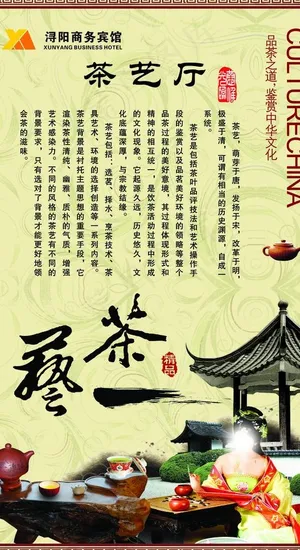 浔阳商务宾馆
XUNYANG BUSINESS HOTEL
茶艺厅
CULTURECHINA
品茶之道,鉴赏中华文化
茶艺,萌芽于唐,发扬于宋,改革于明,
极盛于清,可谓有相当的历史渊源,自成一
系统。
茶艺是包括茶叶品评技法和艺术操作手
段的鉴赏以及品茗美好环境的领略等整个
品茶过程的美好意境,其过程体现形式和
精神的相互统一,是饮茶活动过程中形成
的文化现象。它起源久远,历史悠久,文
化底蕴深厚,与宗教结缘。
茶艺包括:选茗、择水、烹茶技术、茶
具艺术、环境的选择创造等一系列内容。
茶艺背景是衬托主题思想的重要手段,它
渲染茶性清纯、幽雅、质朴的气质,增强
艺术感染力。不同的风格的茶艺有不同的
背景要求,只有选对了背景才能更好地领
会茶的滋味。
茶
藝
精品